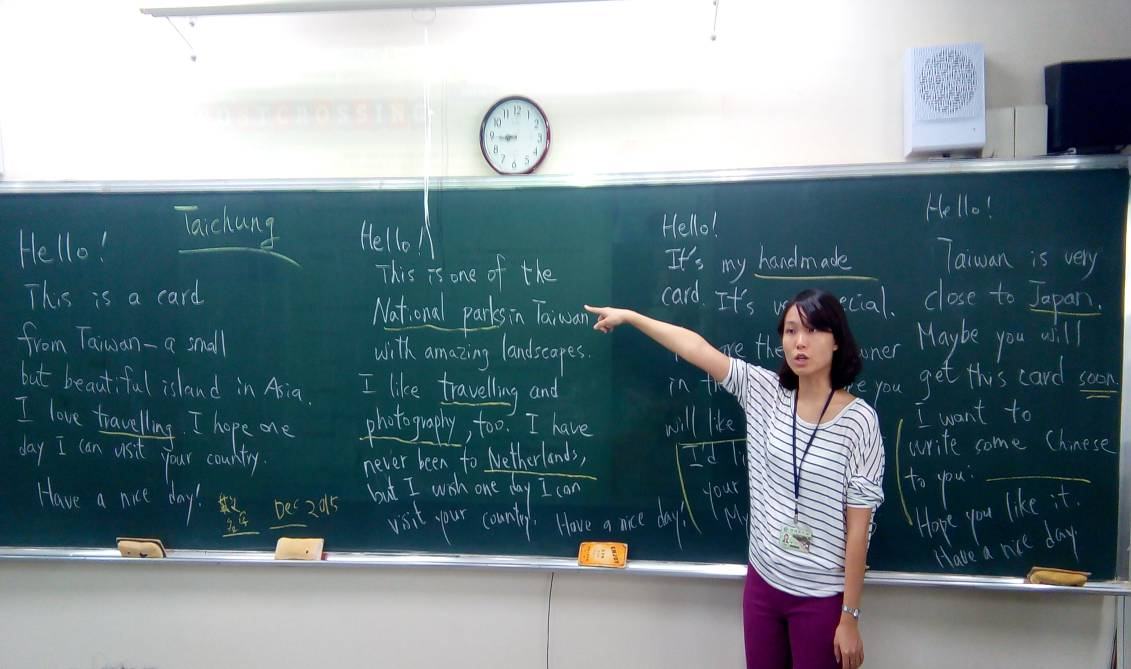 POSTCROSSING
12
1
2
3
4
5
6
7
8
9
10
11
Taichung
Hello!
This is a card
from Taiwan - a small
but beautiful island in Asia.
I love travelling. I hope one
day I can visit your country.
Have a nice day!
Dec 2015
Hello!
This is one of the
National parks in Taiwan
with amazing landscapes.
I like travelling and
photography, too. I have
never been to Netherlands,
but I wish one day I can
visit your country. Have a nice day!
Hello!
It's my handmade
card. It's
in
will like
I'd
your
My
the
you
Hello!
Taiwan is very
close to Japan.
Maybe you will
get this card soon.
I want to
write some Chinese
to you:
Hope you like it.
Have a nice day.